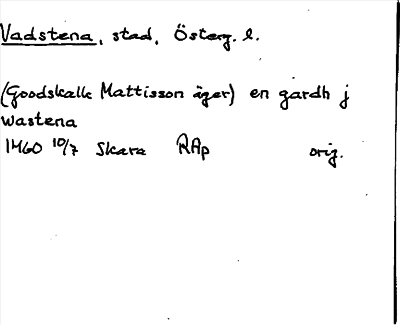 Vadstena, stad, Österg. l.
(Goodskalk Mattisson äger) en gardh j
wastena
1460 10/7 Skara RAp orig.